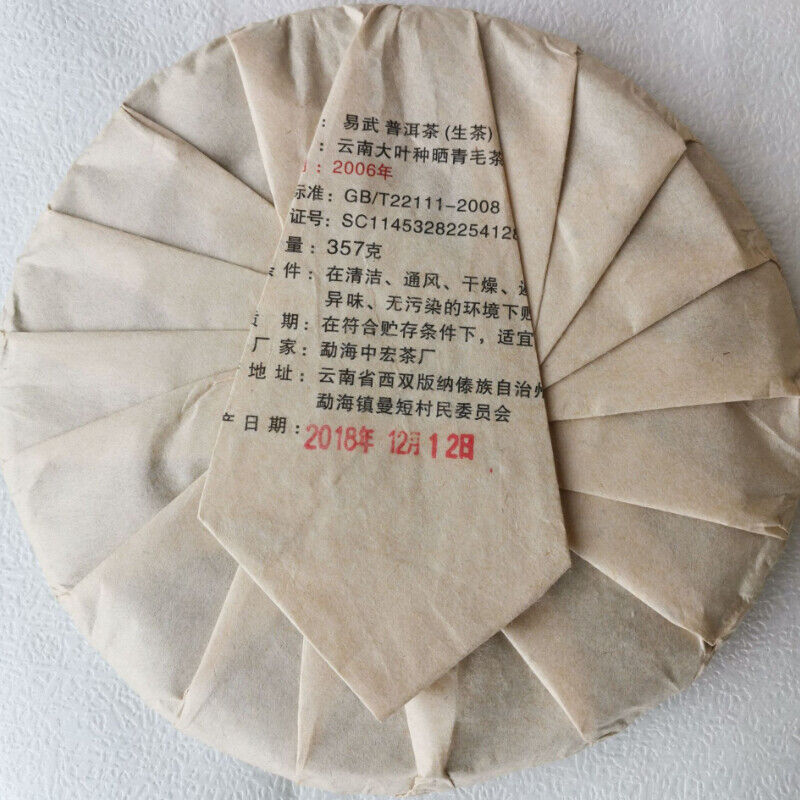 ：易武 普洱茶 (生茶)
：云南大叶种晒青毛茶
：2006年
标准：GB/T22111-2008
证号：SC1145328225412
量：357克
件：在清洁、通风、干燥、
异味、无污染的环境下
期：在符合贮存条件下，适宜
厂 家：勐海中宏茶厂
地 址：云南省西双版纳傣族自治州
勐海镇曼短村民委员会
产日期：2018年 12月12日